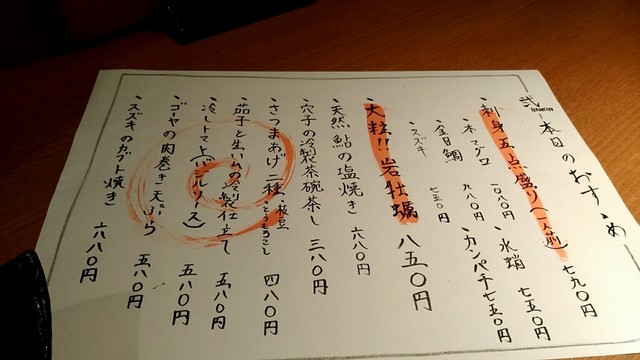 弐 本日のおすすめ
・刺身五点盛り(一人前) 七九〇円
・本マグロ 一〇八〇円 ・水蛸 七五〇円
・金目鯛 九八〇円 ・カンパチ 七五〇円
・スズキ 七五〇円
・大粒!!岩牡蠣 八五〇円
・天然鮎の塩焼き 六八〇円
・穴子の冷製茶碗蒸し 三八〇円
・さつまあげ二種・枝豆・とうもろこし 四八〇円
・茄子と生いくらの冷製仕立て 五八〇円
・冷しトマト(バジルソース) 五八〇円
・ゴーヤの肉巻き天ぷら 五八〇円
・スズキのカブト焼き 六八〇円